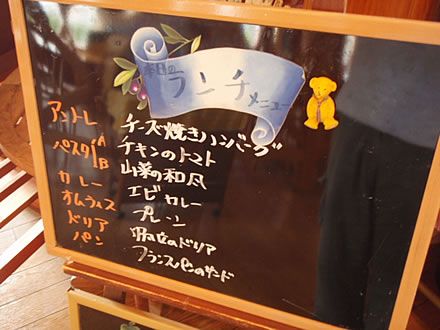 本日の
ランチ
メニュー
アントレ チーズ焼きハンバーグ
パスタ A チキンのトマト
B 山菜の和風
カレー エビカレー
オムライス プレーン
ドリア 帆立のドリア
パン フランスパンのサンド